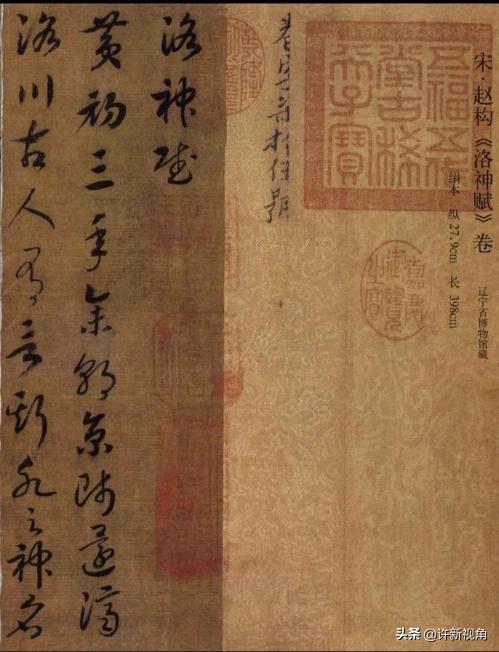 宋·赵构《洛神赋》卷
绢本 纵27.9cm 长398cm
辽宁省博物馆藏
五福五代堂古稀天子寶
嘉慶御覽之寶
號
洛神賦
黄初三年余朝京師還濟
洛川古人有言斯水之神名
头条 @许新视角